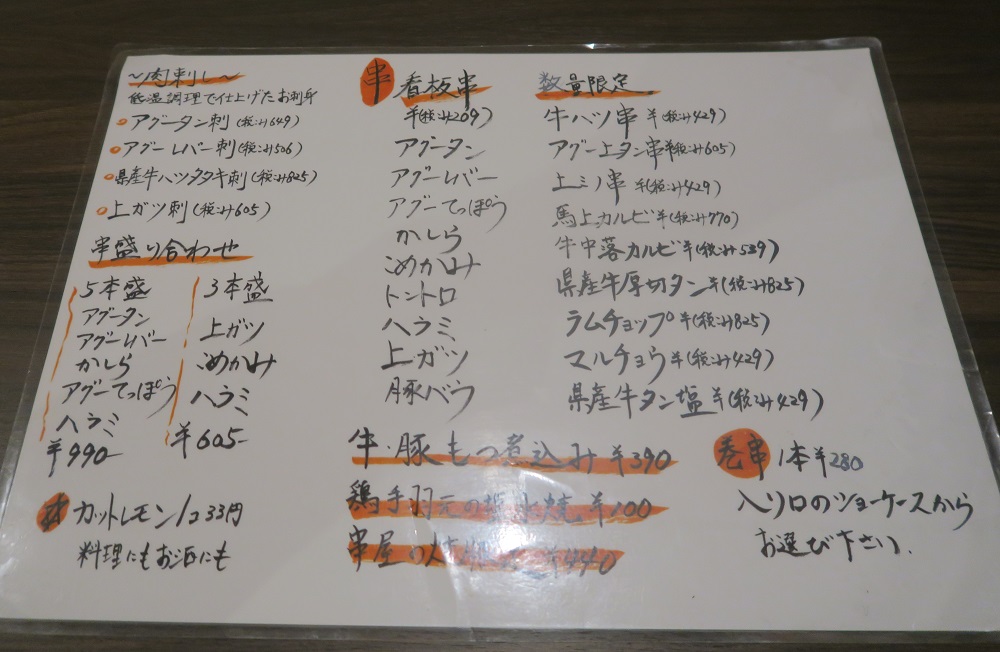 ～肉刺し～
低温調理で仕上げたお刺身
アグータン刺(税込み649)
アグーレバー刺(税込み506)
県産牛ハツタタキ刺(税込み825)
上ガツ刺(税込み605)
串盛り合わせ
5本盛
アグータン
アグーレバー
かしら
アグーてっぽう
ハラミ
¥990-
3本盛
上ガツ
こめかみ
ハラミ
¥605-
カットレモン1コ33円
料理にもお酒にも
串 看板串
¥(税込み209)
アグータン
アグーレバー
アグーてっぽう
かしら
こめかみ
トントロ
ハラミ
上ガツ
豚バラ
数量限定
牛ハツ串 ¥(税込み429)
アグー上タン串¥(税込み605)
上ミノ串 ¥(税込み429)
馬上カルビ¥(税込み770)
牛中落カルビ¥(税込み539)
県産牛厚切タン¥(税込み825)
ラムチョップ¥(税込み825)
マルチョウ¥(税込み429)
県産牛タン塩¥(税込み429)
牛・豚もつ煮込み ¥390
鶏手羽元の 焼 ¥100
串屋の ¥440
巻串 1本¥280
入り口のショーケースから
お選び下さい.